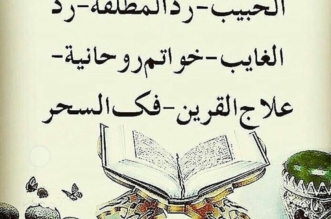 الحبيب-رد المطلقة-رد
الغايب-خواتم روحانية-
علاج القرين-فك السحر